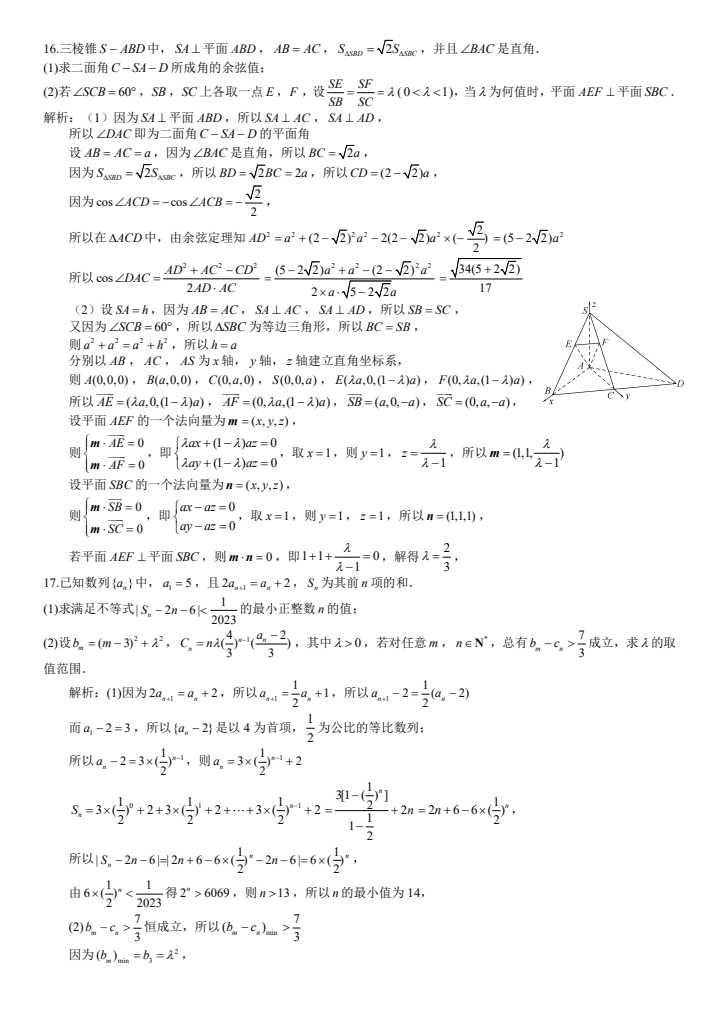 16.三棱锥 S − ABD 中，SA ⊥ 平面 ABD，AB = AC，S_{ΔSBD} = √2 S_{ΔSBC}，并且 ∠BAC 是直角．
(1)求二面角 C − SA − D 所成角的余弦值；
(2)若 ∠SCB = 60°，SB，SC 上各取一点 E，F，设 SE/SB = SF/SC = λ ( 0 < λ < 1)，当 λ 为何值时，平面 AEF ⊥ 平面 SBC．
解析：（1）因为 SA ⊥ 平面 ABD，所以 SA ⊥ AC，SA ⊥ AD，
所以 ∠DAC 即为二面角 C − SA − D 的平面角
设 AB = AC = a，因为 ∠BAC 是直角，所以 BC = √2a，
因为 S_{ΔSBD} = √2 S_{ΔSBC}，所以 BD = √2BC = 2a，所以 CD = (2 − √2)a，
因为 cos ∠ACD = −cos ∠ACB = −√2/2，
所以在 ΔACD 中，由余弦定理知 AD² = a² + (2 − √2)²a² − 2(2 − √2)a² × (−√2/2) = (5 − 2√2)a²
所以 cos ∠DAC = (AD² + AC² − CD²)/(2AD · AC) = ((5 − 2√2)a² + a² − (2 − √2)²a²)/(2 × a · √(5 − 2√2)a) = √(34(5 + 2√2))/17
（2）设 SA = h，因为 AB = AC，SA ⊥ AC，SA ⊥ AD，所以 SB = SC，
又因为 ∠SCB = 60°，所以 ΔSBC 为等边三角形，所以 BC = SB，
则 a² + a² = a² + h²，所以 h = a
分别以 AB，AC，AS 为 x 轴，y 轴，z 轴建立直角坐标系，
则 A(0,0,0)，B(a,0,0)，C(0,a,0)，S(0,0,a)，E(λa,0,(1−λ)a)，F(0,λa,(1−λ)a)，
所以 AE = (λa,0,(1−λ)a)，AF = (0,λa,(1−λ)a)，SB = (a,0,−a)，SC = (0,a,−a)，
z
S
E
F
A
B
x
C
y
D
设平面 AEF 的一个法向量为 m = (x, y, z)，
则 {m · AE = 0, m · AF = 0，即 {λax + (1−λ)az = 0, λay + (1−λ)az = 0，取 x = 1，则 y = 1，z = λ/(λ−1)，所以 m = (1,1, λ/(λ−1))
设平面 SBC 的一个法向量为 n = (x, y, z)，
则 {m · SB = 0, m · SC = 0，即 {ax − az = 0, ay − az = 0，取 x = 1，则 y = 1，z = 1，所以 n = (1,1,1)，
若平面 AEF ⊥ 平面 SBC，则 m · n = 0，即 1 + 1 + λ/(λ−1) = 0，解得 λ = 2/3，
17.已知数列 {aₙ} 中，a₁ = 5，且 2aₙ₊₁ = aₙ + 2，Sₙ 为其前 n 项的和．
(1)求满足不等式 | Sₙ − 2n − 6 |< 1/2023 的最小正整数 n 的值；
(2)设 bₘ = (m − 3)² + λ²，Cₙ = nλ(4/3)ⁿ⁻¹((aₙ − 2)/3)，其中 λ > 0，若对任意 m，n ∈ N*，总有 bₘ − cₙ > 7/3 成立，求 λ 的取
值范围．
解析：(1)因为 2aₙ₊₁ = aₙ + 2，所以 aₙ₊₁ = 1/2 aₙ + 1，所以 aₙ₊₁ − 2 = 1/2(aₙ − 2)
而 a₁ − 2 = 3，所以 {aₙ − 2} 是以 4 为首项，1/2 为公比的等比数列；
所以 aₙ − 2 = 3 × (1/2)ⁿ⁻¹，则 aₙ = 3 × (1/2)ⁿ⁻¹ + 2
Sₙ = 3 × (1/2)⁰ + 2 + 3 × (1/2)¹ + 2 + ⋯ + 3 × (1/2)ⁿ⁻¹ + 2 = 3[1 − (1/2)ⁿ]/(1 − 1/2) + 2n = 2n + 6 − 6 × (1/2)ⁿ，
所以 | Sₙ − 2n − 6 |=| 2n + 6 − 6 × (1/2)ⁿ − 2n − 6 |= 6 × (1/2)ⁿ，
由 6 × (1/2)ⁿ < 1/2023 得 2ⁿ > 6069，则 n > 13，所以 n 的最小值为 14，
(2) bₘ − cₙ > 7/3 恒成立，所以 (bₘ − cₙ)_{min} > 7/3
因为 (bₘ)_{min} = b₃ = λ²，